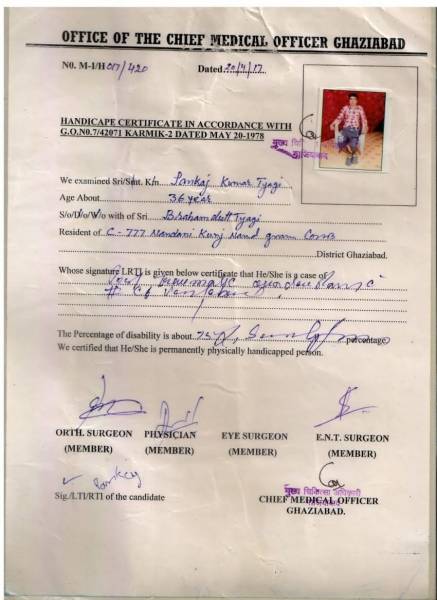 OFFICE OF THE CHIEF MEDICAL OFFICER GHAZIABAD
N0. M-I/H 017/420 Dated 20/4/17
HANDICAPE CERTIFICATE IN ACCORDANCE WITH
G.O.N0.7/42071 KARMIK-2 DATED MAY 20-1978
मुख्य चिकि
गाजियाबाद
We examined Sri/Smt. Km Pankaj Kumar Tyagi
Age About 36 year
S/o/D/o/W/o with of Sri Brahamdutt Tyagi
Resident of C-777 Nandani Kunj Nand gram
District Ghaziabad.
Whose signature LRTI is given below certificate that He/She is a case of
Post
The Percentage of disability is about 75%, percentage
We certified that He/She is permanently physically handicapped person.
ORTH. SURGEON PHYSICIAN EYE SURGEON E.N.T. SURGEON
(MEMBER) (MEMBER) (MEMBER) (MEMBER)
Pankaj
Sig./LTI/RTI of the candidate
मुख्य चिकित्सा अधिकारी
CHIEF MEDICAL OFFICER
गाजियाबाद
GHAZIABAD.